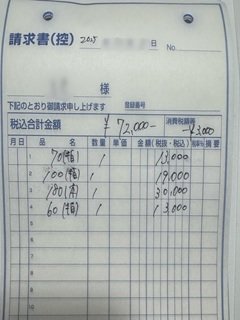 請求書(控)
2025 日
No.
様
下記のとおり御請求申し上げます 登録番号
税込合計金額 ¥72,000- 消費税額等 -¥3,000
月 日 品名 数量 単価 金額(税抜・税込) 税率% 摘要
1 70(箱) 1 13,000
2 100(箱) 1 19,000
3 180(本) 1 30,000
4 60(箱) 1 13,000
5
6
7
8
9
10